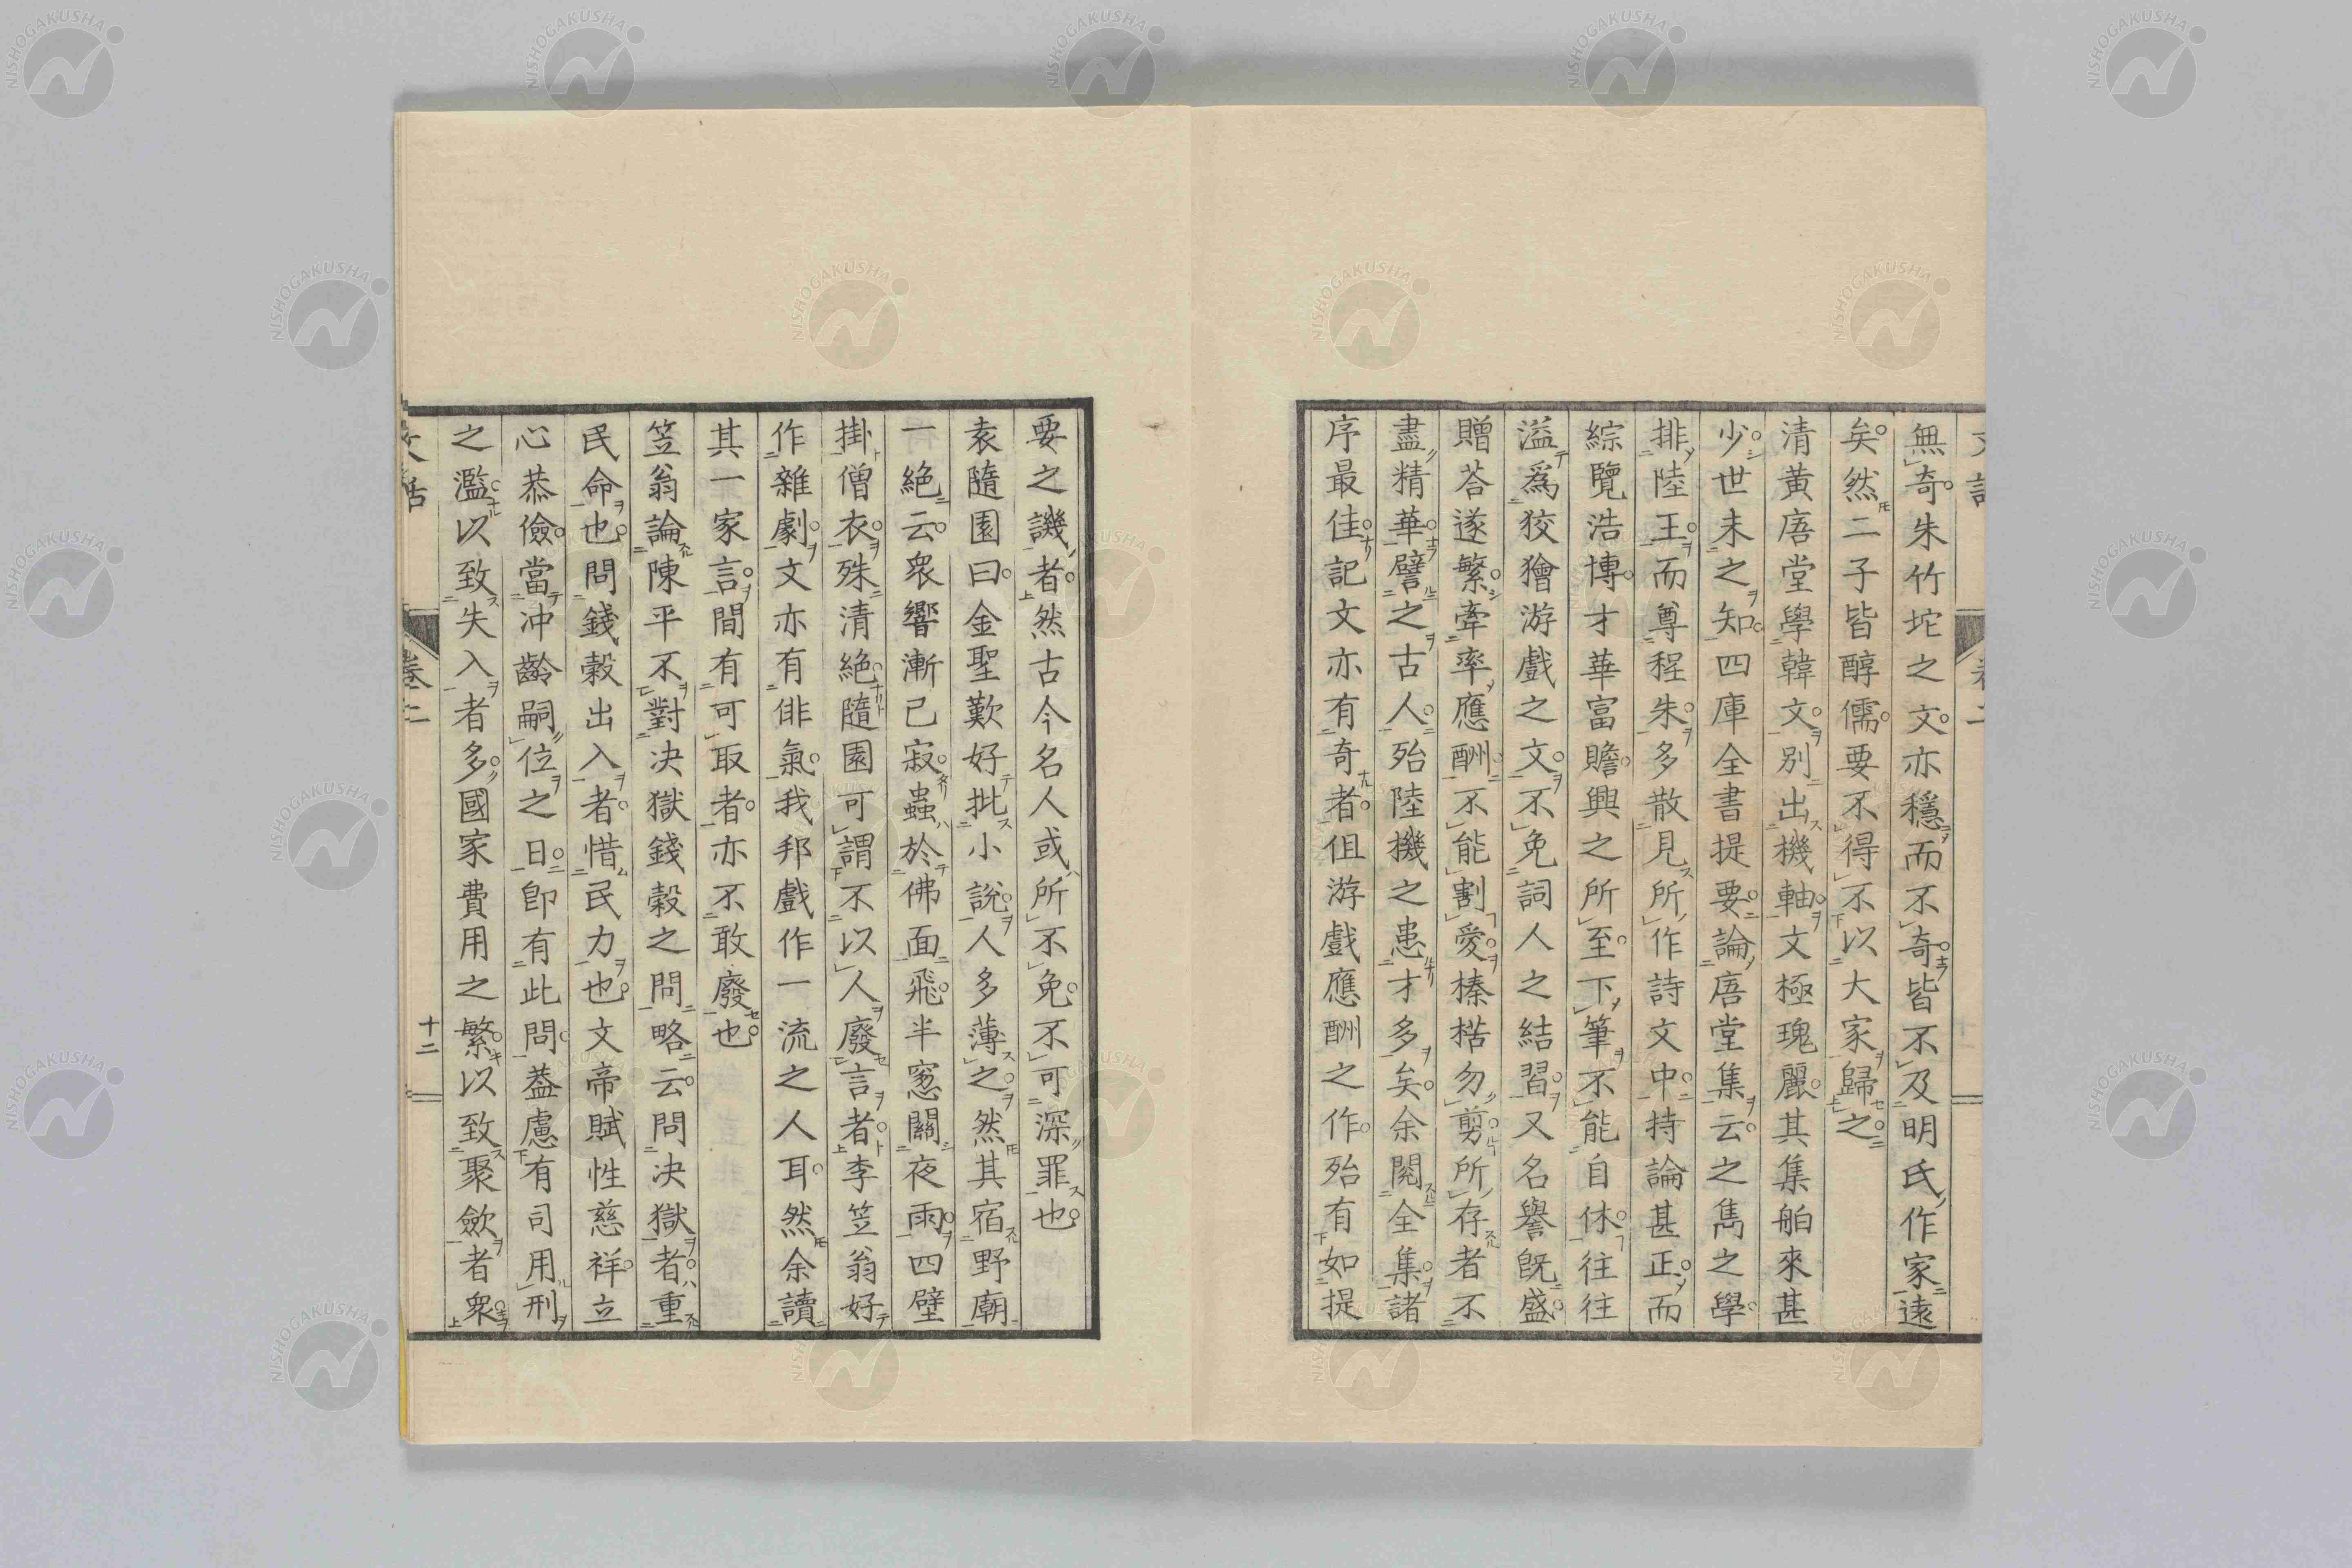 無奇朱竹坨之文亦穩而不奇皆不及明氏作家遠
矣然二子皆醇儒要不得不以大家歸之
清黃唐堂學韓文別出機軸文極瑰麗其集舶來甚
少世未之知四庫全書提要論唐堂集云之雋之學
排陸王而尊程朱多散見所作詩文中持論甚正而
綜覽浩博才華富贍興之所至下筆不能自休往往
溢爲狡獪游戲之文不免詞人之結習又名譽既盛
贈荅遂繁牽率應酬不能割愛榛楛勿剪所存者不
盡精華譬之古人殆陸機之患才多矣余閱全集諸
序最佳記文亦有奇者但游戲應酬之作殆有如提
要之譏者然古今名人或所不免不可深罪也
袁隨園曰金聖歎好批小說人多薄之然其宿野廟
一絕云衆響漸已寂蟲於佛面飛半窓關夜雨四壁
掛僧衣殊清絕隨園可謂不以人廢言者李笠翁好
作雜劇文亦有俳氣我邦戲作一流之人耳然余讀
其一家言間有可取者亦不敢廢也
笠翁論陳平不對決獄錢穀之問略云問決獄者重
民命也問錢穀出入者惜民力也文帝賦性慈祥立
心恭儉當冲齡嗣位之日卽有此問葢慮有司用刑
之濫以致失入者多國家費用之繁以致聚斂者衆
文話
卷二
十二
NISHOGAKUSHA